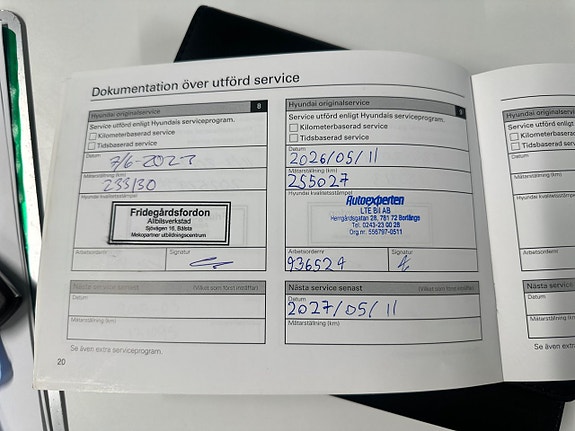 Dokumentation över utförd service
Hyundai originalservice 8
Service utförd enligt Hyundais serviceprogram.
Kilometerbaserad service
Tidsbaserad service
Datum
7/6-2023
Mätarställning (km)
233130
Hyundai kvalitetsstämpel
Fridegårdsfordon
Allbilsverkstad
Sjövägen 16, Bålsta
Mekopartner utbildningscentrum
Arbetsordernr Signatur
Nästa service senast (Vilket som först inträffar)
Datum
Mätarställning (km)
Se även extra serviceprogram.
20
Hyundai originalservice 9
Service utförd enligt Hyundais serviceprogram.
Kilometerbaserad service
Tidsbaserad service
Datum
2026/05/11
Mätarställning (km)
255027
Hyundai kvalitetsstämpel
Autoexperten
LTE Bil AB
Hemgårdsgatan 28, 781 72 Borlänge
Tel: 0243-23 00 28
Org nr: 556797-0511
Arbetsordernr Signatur
936524
Nästa service senast (Vilket som först inträffar)
Datum
2027/05/11
Mätarställning (km)
Hyundai originalservice
Service utförd en
Kilometerbaserad
Tidsbaserad service
Datum
Mätarställning (km)
Hyundai
Arbetsordernr
Nästa service
Datum
Mätarställning (km)
Se även extra